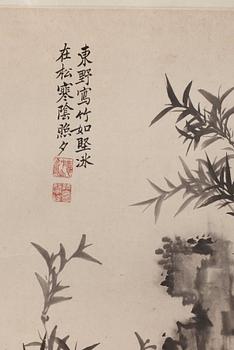 東野寫竹如堅冰
在松寒陰照夕